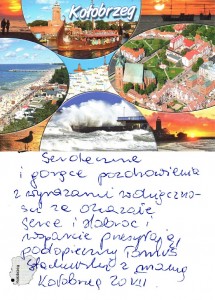 Kołobrzeg
Serdeczne
i gorące pozdrowienia
z wyrazami wdzięczno-
ści za okazane
serce i dobroć i
wsparcie przesyłają
podopieczny Tomuś
z mamą
Kołobrzeg